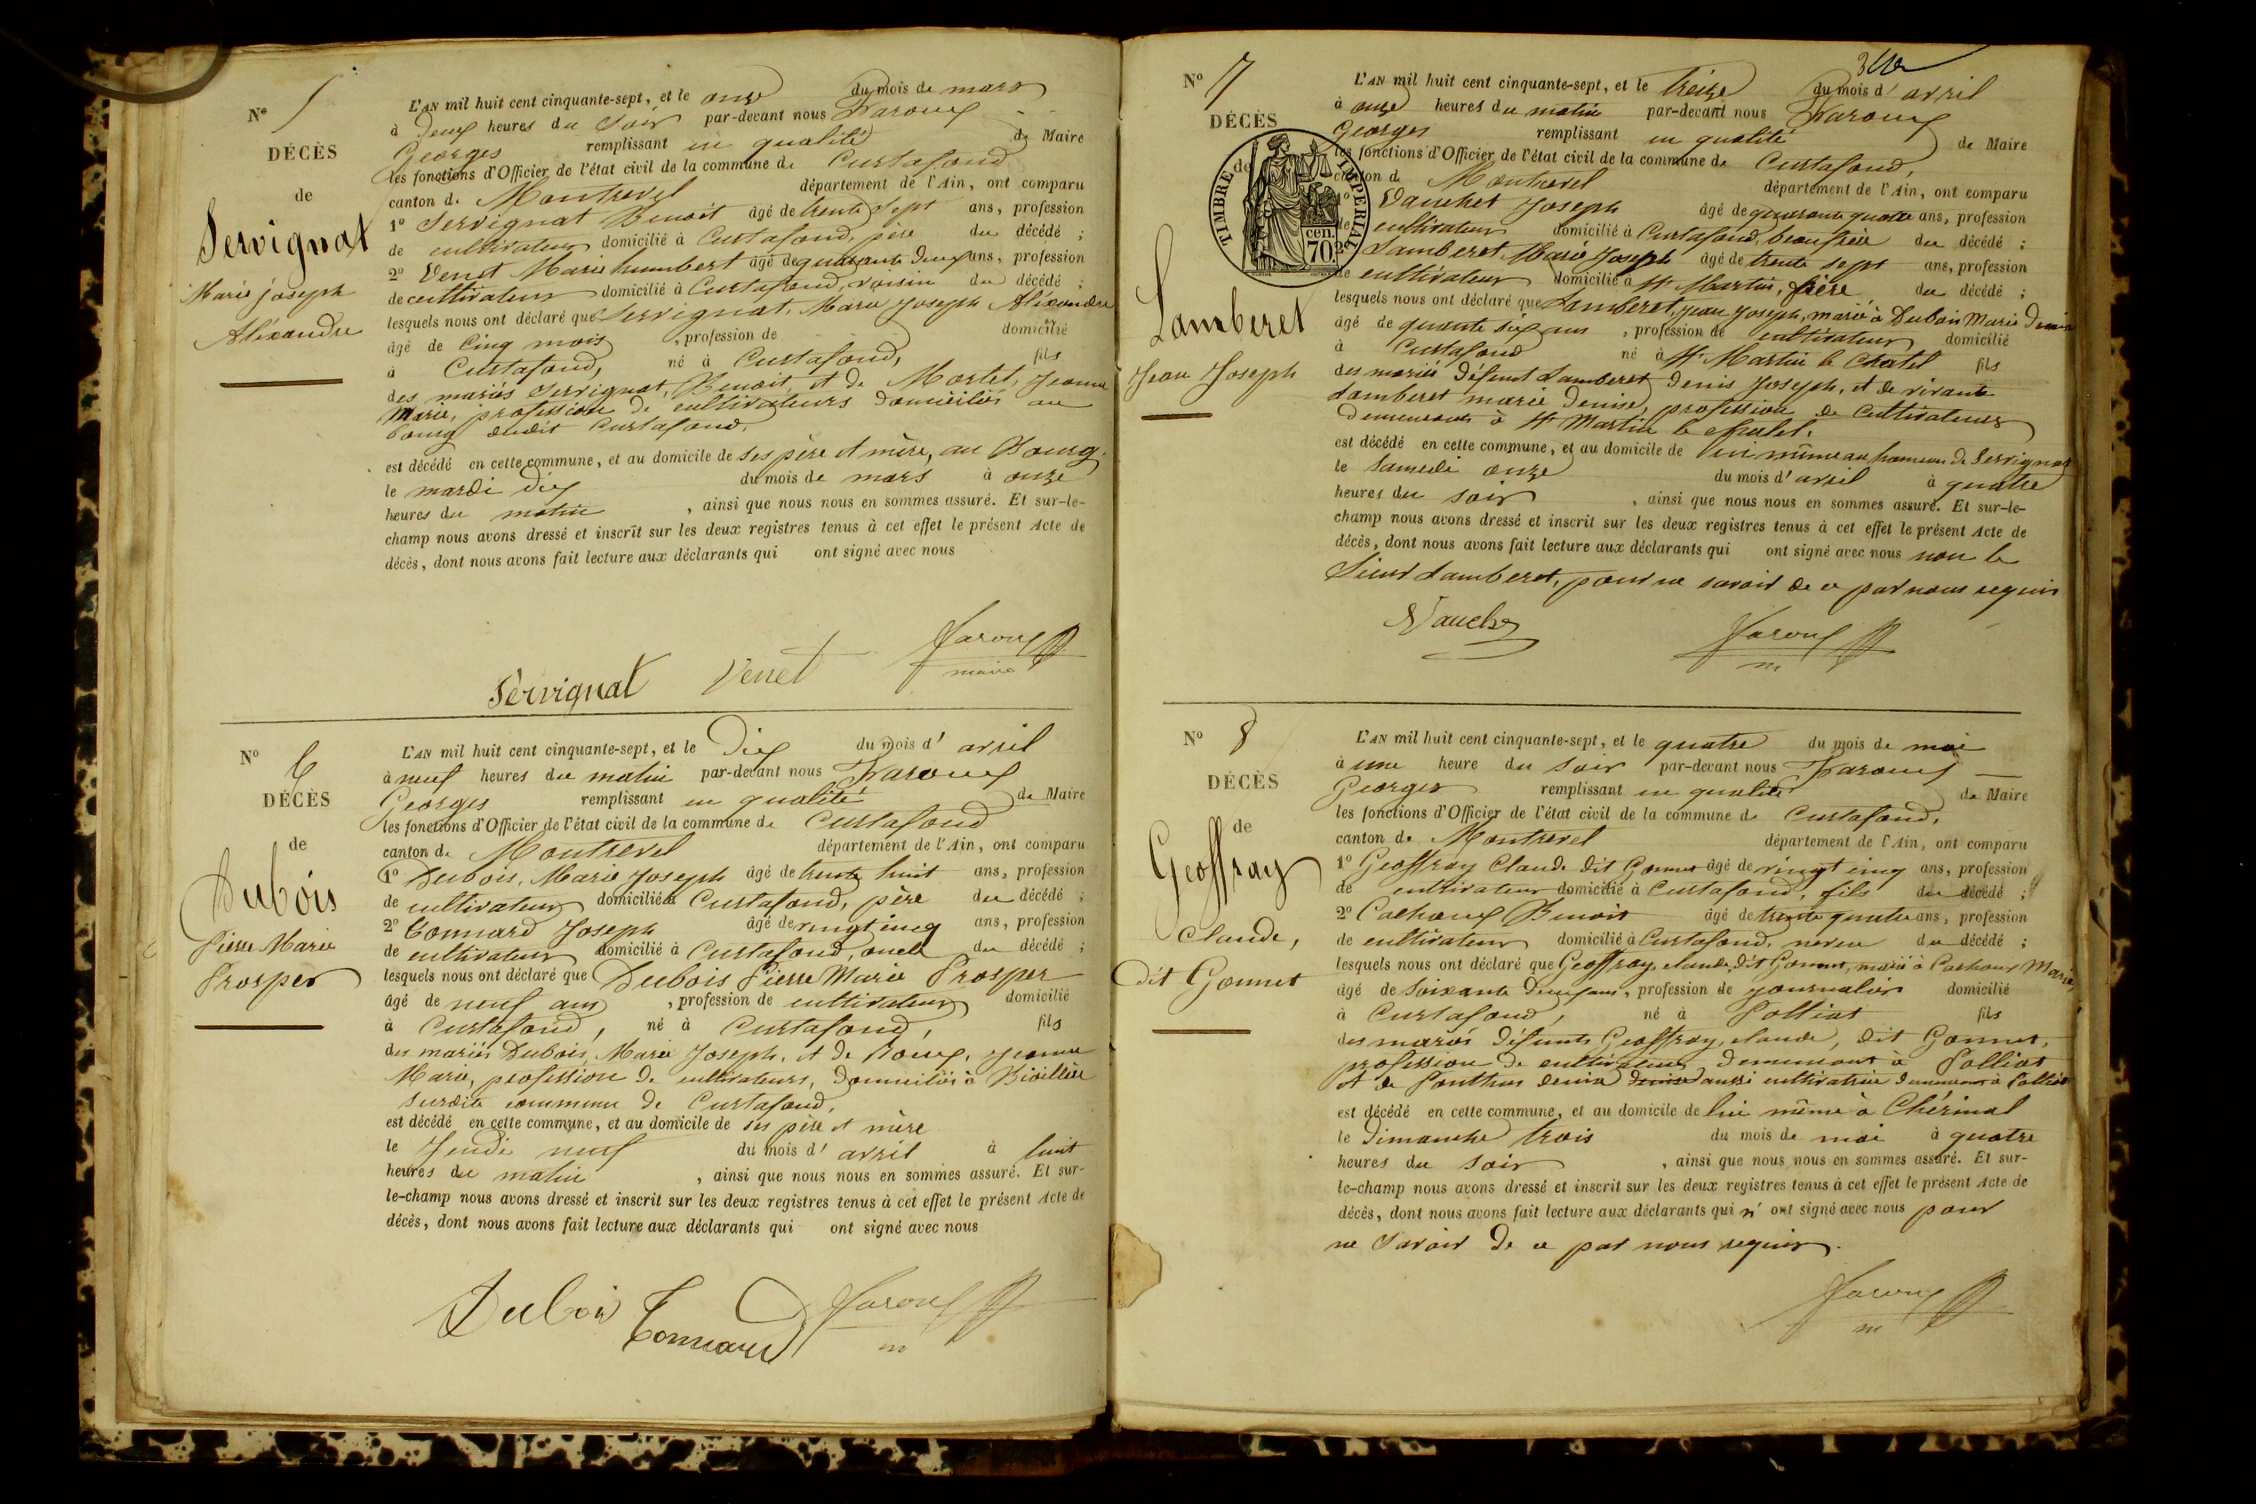 N° 5
DÉCÈS
de
Servignat
Marie joseph
Aléxandre
L'AN mil huit cent cinquante-sept, et le onze du mois de mars
à deux heures du soir par-devant nous Faroux
Georges remplissant en qualité de Maire
les fonctions d'Officier de l'état civil de la commune de Curtafond
canton de Montrevel département de l'Ain, ont comparu
1° Servignat Benoit âgé de trente sept ans, profession
de cultivateur domicilié à Curtafond, père du décédé ;
2° Venet Marie humbert âgé de quarante deux ans, profession
de cultivateur domicilié à Curtafond, voisin du décédé ;
lesquels nous ont déclaré que Servignat, Marie Joseph Aléxandre
âgé de Cinq mois , profession de domicilié
à Curtafond, né à Curtafond, fils
des mariés Servignat, Benoit, et de Mortel, Jeanne
Marie, profession de cultivateurs domiciliés au
bourg dudit Curtafond.
est décédé en cette commune, et au domicile de ses père et mère, au Bourg.
le mardi dix du mois de mars à onze
heures du matin , ainsi que nous nous en sommes assuré. Et sur-le-
champ nous avons dressé et inscrit sur les deux registres tenus à cet effet le présent Acte de
décès, dont nous avons fait lecture aux déclarants qui ont signé avec nous
Servignat Venet Faroux
maire
N° 6
DÉCÈS
de
Dubois
Pierre Marie
Prosper
L'AN mil huit cent cinquante-sept, et le Dix du mois d' avril
à neuf heures du matin par-devant nous Faroux
Georges remplissant en qualité de Maire
les fonctions d'Officier de l'état civil de la commune de Curtafond
canton de Montrevel département de l'Ain, ont comparu
1° Dubois, Marie Joseph âgé de trente huit ans, profession
de cultivateur domicilié à Curtafond, père du décédé ;
2° Connard Joseph âgé de vingt cinq ans, profession
de cultivateur domicilié à Curtafond, oncle du décédé ;
lesquels nous ont déclaré que Dubois Pierre Marie Prosper
âgé de neuf ans , profession de cultivateur domicilié
à Curtafond, né à Curtafond, fils
des mariés Dubois, Marie Joseph, et de Roux, Jeanne
Marie, profession de cultivateurs, domiciliés à
surdite commune de Curtafond,
est décédé en cette commune, et au domicile de ses père et mère
le Jeudi neuf du mois d' avril à huit
heures du matin , ainsi que nous nous en sommes assuré. Et sur-
le-champ nous avons dressé et inscrit sur les deux registres tenus à cet effet le présent Acte de
décès, dont nous avons fait lecture aux déclarants qui ont signé avec nous
Dubois Connard Faroux
m
N° 7
DÉCÈS
de
TIMBRE IMPERIAL
cen.
70
Lamberet
Jean Joseph
L'AN mil huit cent cinquante-sept, et le treize du mois d' avril
à onze heures du matin par-devant nous Faroux
Georges remplissant en qualité de Maire
les fonctions d'Officier de l'état civil de la commune de Curtafond,
canton de Montrevel département de l'Ain, ont comparu
1° Vauchet Joseph âgé de quarante quatre ans, profession
de cultivateur domicilié à Curtafond, beau frère du décédé ;
2° Lamberet, Marie Joseph âgé de trente sept ans, profession
de cultivateur domicilié à St Martin, frère du décédé ;
lesquels nous ont déclaré que Lamberet, Jean Joseph, marié à Dubois Marie Denise
âgé de quarante six ans , profession de cultivateur domicilié
à Curtafond né à St Martin le Chatel fils
des mariés défunt Lamberet Denis Joseph, et de vivante
Lamberet marie Denise, profession de Cultivateurs
demeurants à St Martin le Chatel.
est décédé en cette commune, et au domicile de lui même au hameau de Servignat
le Samedi onze du mois d' avril à quatre
heures du soir , ainsi que nous nous en sommes assuré. Et sur-le-
champ nous avons dressé et inscrit sur les deux registres tenus à cet effet le présent Acte de
décès, dont nous avons fait lecture aux déclarants qui ont signé avec nous non le
Sieur Lamberet, pour ne savoir de ce par nous requis
Vauchet Faroux
m
N° 8
DÉCÈS
de
Geoffray
Claude,
dit Gonnet
L'AN mil huit cent cinquante-sept, et le quatre du mois de mai
à une heure du soir par-devant nous Faroux
Georges remplissant en qualité de Maire
les fonctions d'Officier de l'état civil de la commune de Curtafond,
canton de Montrevel département de l'Ain, ont comparu
1° Geoffray Claude dit Gonnet âgé de vingt cinq ans, profession
de cultivateur domicilié à Curtafond, fils du décédé ;
2° Cathoux Benoit âgé de trente quatre ans, profession
de cultivateur domicilié à Curtafond, neveu du décédé ;
lesquels nous ont déclaré que Geoffray, claude, dit Gonnet, marié à Cathoux Marie,
âgé de Soixante deux ans, profession de journalier domicilié
à Curtafond, né à Polliat fils
des mariés défunts Geoffray, claude, dit Gonnet,
profession de cultivateur demeurant à Polliat
et de Ponthus denise aussi cultivatrice demeurant à Polliat
est décédé en cette commune, et au domicile de lui même à Chérinal
le Dimanche trois du mois de mai à quatre
heures du soir , ainsi que nous nous en sommes assuré. Et sur-
le-champ nous avons dressé et inscrit sur les deux registres tenus à cet effet le présent Acte de
décès, dont nous avons fait lecture aux déclarants qui n' ont signé avec nous pour
ne savoir de ce par nous requis.
Faroux
m